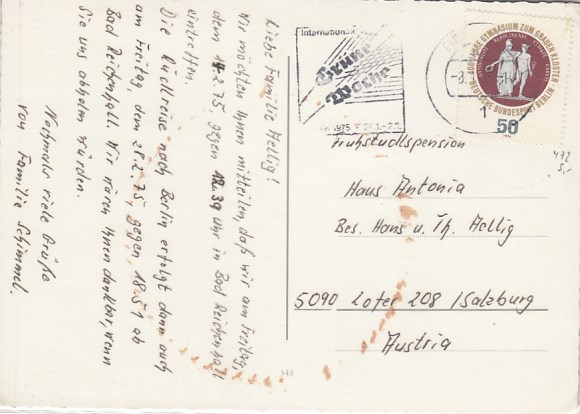 Liebe Familie Hellig!
Wir möchten Ihnen mitteilen, daß wir am Freitag,
dem 14.2.75, gegen Uhr in Bad Reichenhall
eintreffen.
Die Rückreise nach Berlin erfolgt dann auch
am Freitag, dem 21.2.75, gegen 18.51 ab
Bad Reichenhall. Wir wären Ihnen dankbar, wenn
Sie uns abholen würden.
Nochmals viele Grüße
von Familie Schimmel.
International
Grüne
Woche
400 JAHRE GYMNASIUM ZUM GRAUEN KLOSTER
DEUTSCHE BUNDESPOST BERLIN
50
1
Frühstücklspension
Haus Antonia
Bes. Hans u. Th. Hellig
5090 Lofer 208 /Salzburg
Austria
472
5,-